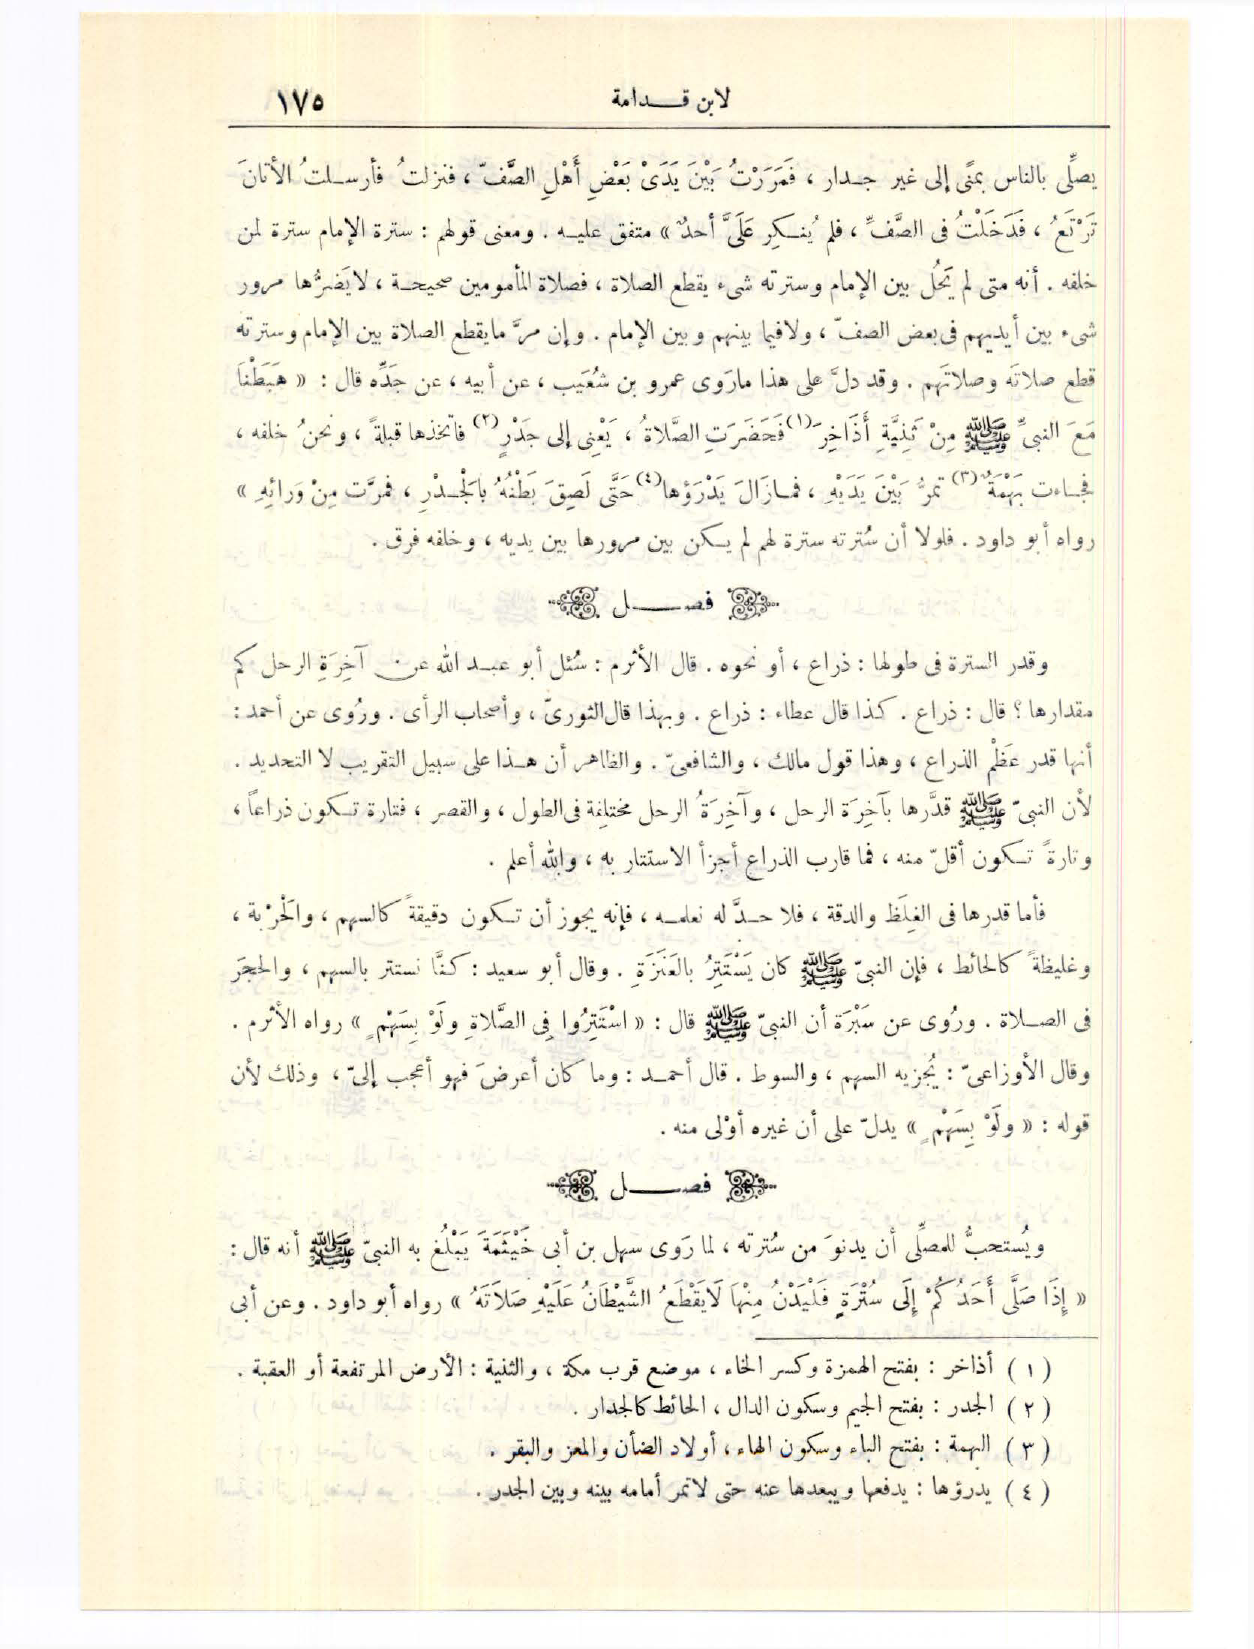 لابن قدامة ١٧٥
يصلِّى بالناس بمنًى إلى غير جدار ، فَمَرَرْتُ بَيْنَ يَدَىْ بَعْضِ أَهْلِ الصَّفّ ، فنزلتُ فأرسلتُ الأتانَ
تَرْتَعُ ، فَدَخَلْتُ فى الصَّفِّ ، فلم يُنكِر عَلَىَّ أحدٌ » متفق عليه . ومعنى قولهم : سترة الإمام سترة لمن
خلفه . أنه متى لم يَحُل بين الإمام وسترته شىء يقطع الصلاة ، فصلاة المأمومين صحيحة ، لا يَضرُّها مرور
شىء بين أيديهم فى بعض الصفّ ، ولا فيما بينهم وبين الإمام . وإن مرَّ ما يقطع الصلاة بين الإمام وسترته
قطع صلاتَه وصلاتَهم . وقد دلَّ على هذا ما رَوى عمرو بن شُعَيب ، عن أبيه ، عن جَدِّه قال : « هَبَطْنَا
مَعَ النبىِّ ﷺ مِنْ ثَنِيَّةِ أَذَاخِرَ (١) فَحَضَرَتِ الصَّلاةُ ، يَعْنِى إلى جَدْرٍ (٢) فاتخذها قبلةً ، ونحنُ خلفه ،
فجاءت بَهْمَةٌ (٣) تمرُّ بَيْنَ يَدَيْهِ ، فما زَالَ يَدْرَؤها (٤) حَتَّى لَصِقَ بَطْنُهُ بالْجَدْرِ ، فمرَّت مِنْ وَرائِهِ »
رواه أبو داود . فلولا أن سُترته سترة لهم لم يكن بين مرورها بين يديه ، وخلفه فرق .
فصل
وقدر السترة فى طولها : ذراع ، أو نحوه . قال الأثرم : سُئل أبو عبد الله عن آخِرَةِ الرحل كم
مقدارها ؟ قال : ذراع . كذا قال عطاء : ذراع . وبهذا قال الثورىّ ، وأصحاب الرأى . ورُوى عن أحمد :
أنها قدر عَظْم الذراع ، وهذا قول مالك ، والشافعىّ . والظاهر أن هذا على سبيل التقريب لا التحديد .
لأن النبىّ ﷺ قدَّرها بآخِرَة الرحل ، وآخِرَةُ الرحل مختلفة فى الطول ، والقصر ، فتارة تكون ذراعاً ،
وتارةً تكون أقلّ منه ، فما قارب الذراع أجزأ الاستتار به ، والله أعلم .
فأما قدرها فى الغِلَظ والدقة ، فلا حدَّ له نعلمه ، فإنه يجوز أن تكون دقيقةً كالسهم ، والْحَرْبة ،
وغليظةً كالحائط ، فإن النبىّ ﷺ كان يَسْتَتِرُ بالعَنَزَةِ . وقال أبو سعيد : كنَّا نستتر بالسهم ، والحجَر
فى الصلاة . ورُوى عن سَبْرَة أن النبىّ ﷺ قال : « اسْتَتِرُوا فِى الصَّلاةِ ولَوْ بِسَهْمٍ » رواه الأثرم .
وقال الأوزاعىّ : يُجزيه السهم ، والسوط . قال أحمد : وما كان أعرضَ فهو أعجب إلىّ ، وذلك لأن
قوله : « ولَوْ بِسَهْمٍ » يدلّ على أن غيره أوْلى منه .
فصل
ويُستحبُّ للمصلِّى أن يدنوَ من سُترته ، لما رَوى سهل بن أبى خَيْثَمَةَ يَبْلُغ به النبىّ ﷺ أنه قال :
« إِذَا صَلَّى أَحَدُكُمْ إِلَى سُتْرَةٍ فَلْيَدْنُ مِنْهَا لَا يَقْطَعُ الشَّيْطَانُ عَلَيْهِ صَلَاتَهُ » رواه أبو داود . وعن أبى
( ١ ) أذاخر : بفتح الهمزة وكسر الخاء ، موضع قرب مكة ، والثنية : الأرض المرتفعة أو العقبة .
( ٢ ) الجدر : بفتح الجيم وسكون الدال ، الحائط كالجدار .
( ٣ ) البهمة : بفتح الباء وسكون الهاء ، أولاد الضأن والمعز والبقر .
( ٤ ) يدرؤها : يدفعها ويبعدها عنه حتى لا تمر أمامه بينه وبين الجدر .